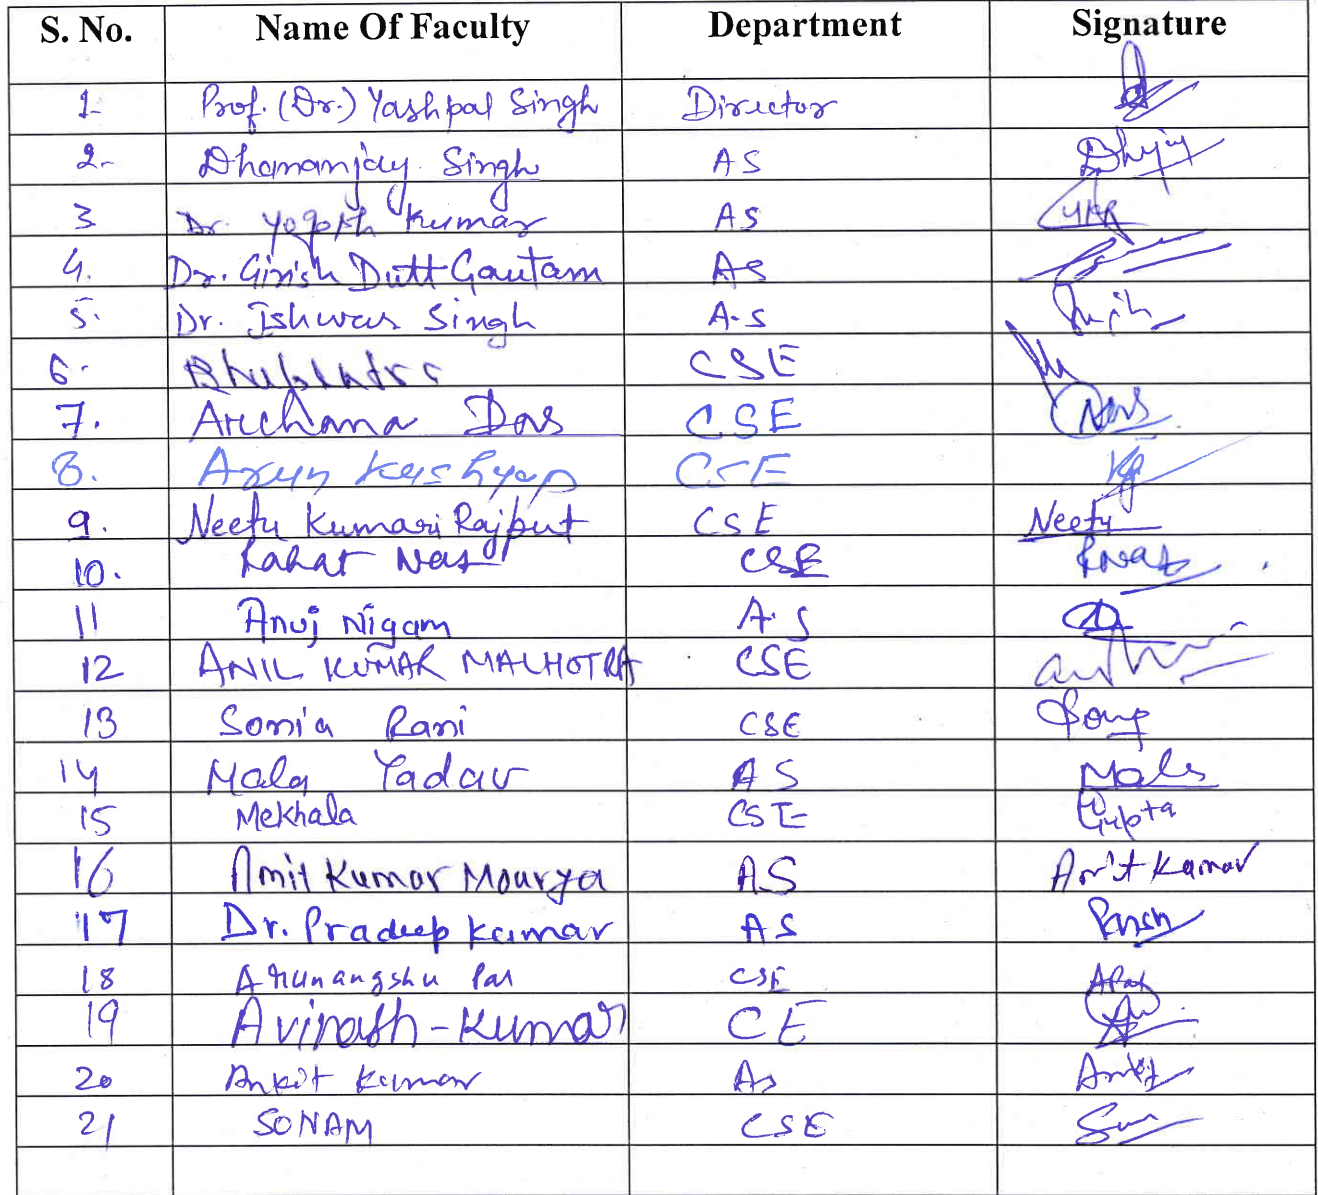 S. No. Name Of Faculty Department Signature
1- Prof. (Dr.) Yashpal Singh Director
2- Dhananjay Singh AS
3 Dr. Yogesh Kumar AS
4. Dr. Girish Dutt Gautam AS
5. Dr. Ishwar Singh A.S
6. Bhupendra CSE
7. Archana Das CSE Das
8. Arun Kashyap CSE
9. Neetu Kumari Rajput CSE Neetu
10. Rahat Naz CSE RNaz
11 Anuj Nigam A.S
12 ANIL KUMAR MALHOTRA CSE
13 Sonia Rani CSE
14 Mala Yadav AS Mala
15 Mekhala CSE Gupta
16 Amit Kumar Mourya AS Amit Kumar
17 Dr. Pradeep Kumar AS
18 Arunangshu Pal CSE APal
19 Avinash-Kumar CE
20 Ankit Kumar As
21 SONAM CSE